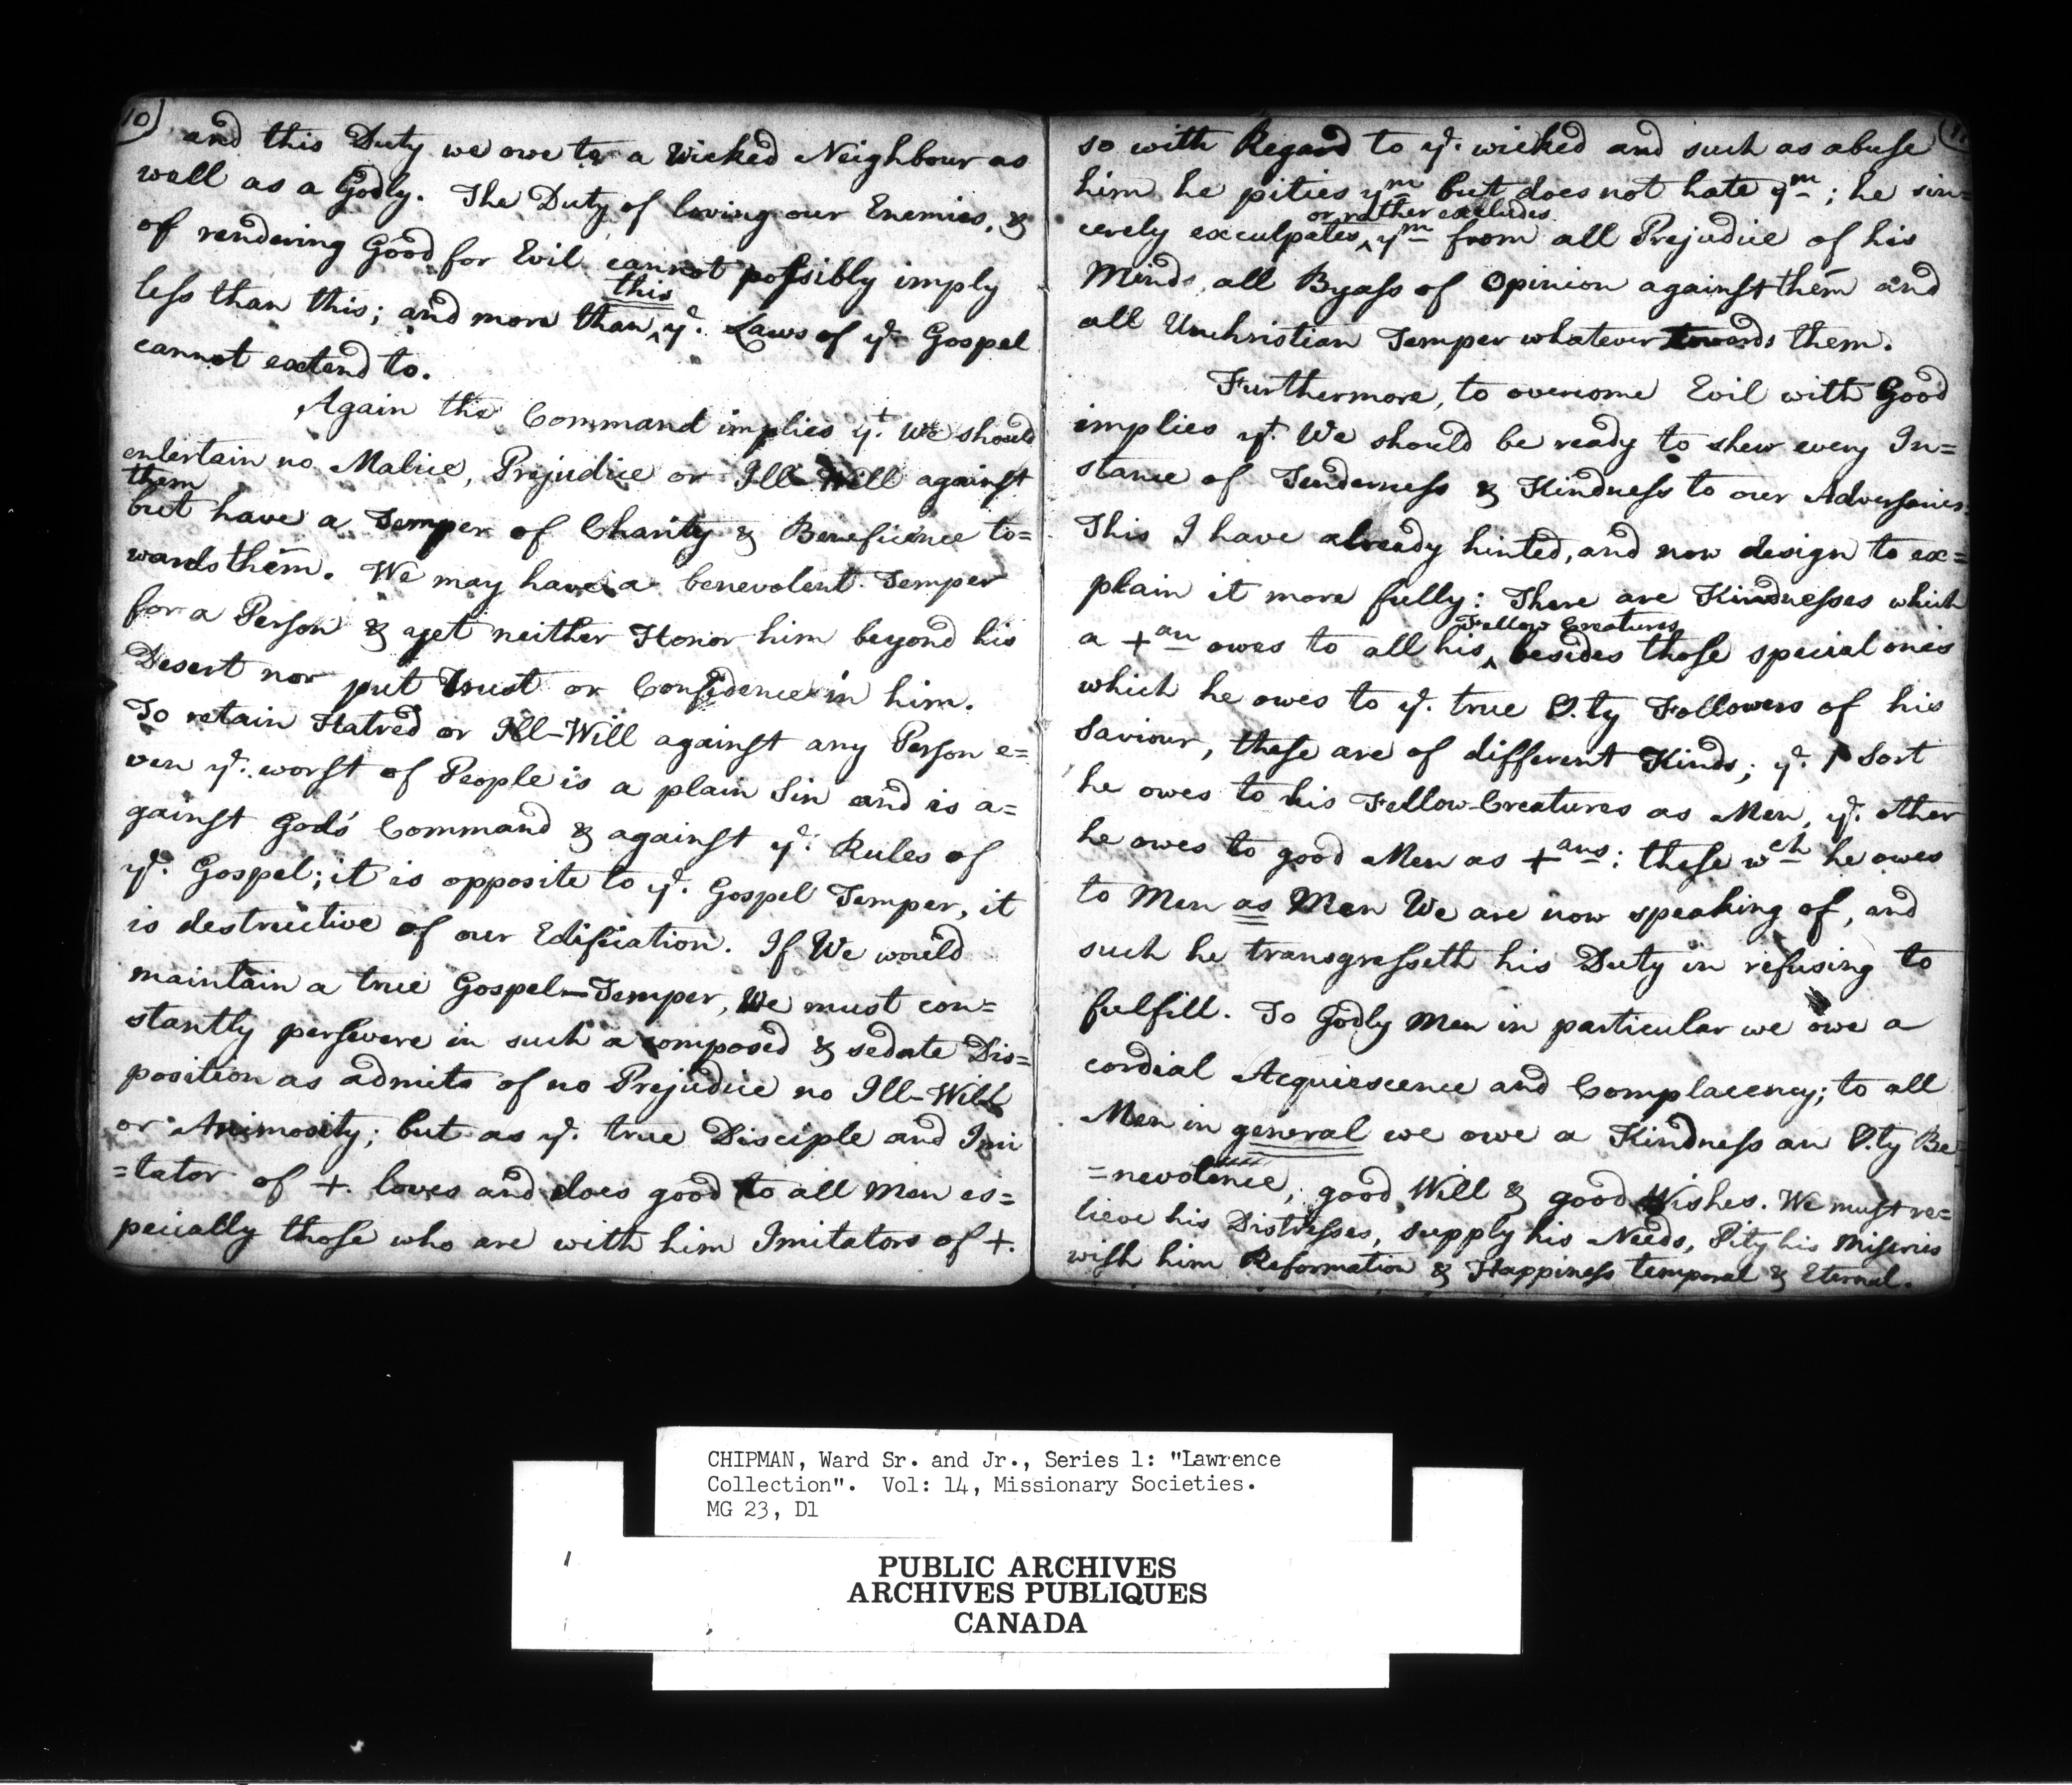 10)
and this Duty we owe to a Wicked Neighbour as
well as a Godly. The Duty of loving our Enemies, &
of rendering Good for Evil cannot possibly imply
less than this; and more than ^this yͤ. Laws of yͤ. Gospel
cannot extend to.
Again the Command implies yͭ. We should
entertain no Malice, Prejudice or Ill-Will against
them
but have a Temper of Charity & Beneficence to=
wards them. We may have a benevolent Temper
for a Person & yet neither Honor him beyond his
Desert nor put Trust or Confidence in him.
To retain Hatred or Ill-Will against any Person e=
ven yͤ. worst of People is a plain Sin and is a=
gainst God's Command & against yͤ. Rules of
yͤ. Gospel; it is opposite to yͤ. Gospel Temper, it
is destructive of our Edification. If We would
maintain a true Gospel-Temper, We must con=
stantly persevere in such a composed & sedate Dis=
position as admits of no Prejudice no Ill-Will
or Animosity; but as yͤ. true Disciple and Imi
=tator of +. loves and does good to all Men es=
pecially those who are with him Imitators of +.
(11
so with Regard to yͤ. wicked and such as abuse
him he pities yᵐ but does not hate yᵐ; he sin=
cerely exculpates ^or rather excludes yᵐ from all Prejudice of his
Mind, all Byass of Opinion against them and
all Unchristian Temper whatever towards them.
Furthermore, to overcome Evil with Good
implies yͭ. We should be ready to shew every In=
stance of Tenderness & Kindness to our Adversaries.
This I have already hinted, and now design to ex=
plain it more fully: There are Kindnesses which
a +ᵃⁿ owes to all his ^Fellow Creatures besides those special ones
which he owes to yͤ. true &.ty Followers of his
Saviour, these are of different Kinds; yͤ. 1 Sort
he owes to his Fellow-Creatures as Men, yͤ. other
he owes to good Men as +ᵃⁿˢ: these wᶜʰ he owes
to Men as Men We are now speaking of, and
such he transgresseth his Duty in refusing to
fulfill. To Godly Men in particular we owe a
cordial Acquiescence and Complacency; to all
Men in general we owe a Kindness an &.ty Be
=nevolence, good Will & good Wishes. We must re=
lieve his Distresses, supply his Needs, Pity his Miseries
wish him Reformation & Happiness temporal & Eternal.
CHIPMAN, Ward Sr. and Jr., Series 1: "Lawrence
Collection". Vol: 14, Missionary Societies.
MG 23, D1
PUBLIC ARCHIVES
ARCHIVES PUBLIQUES
CANADA